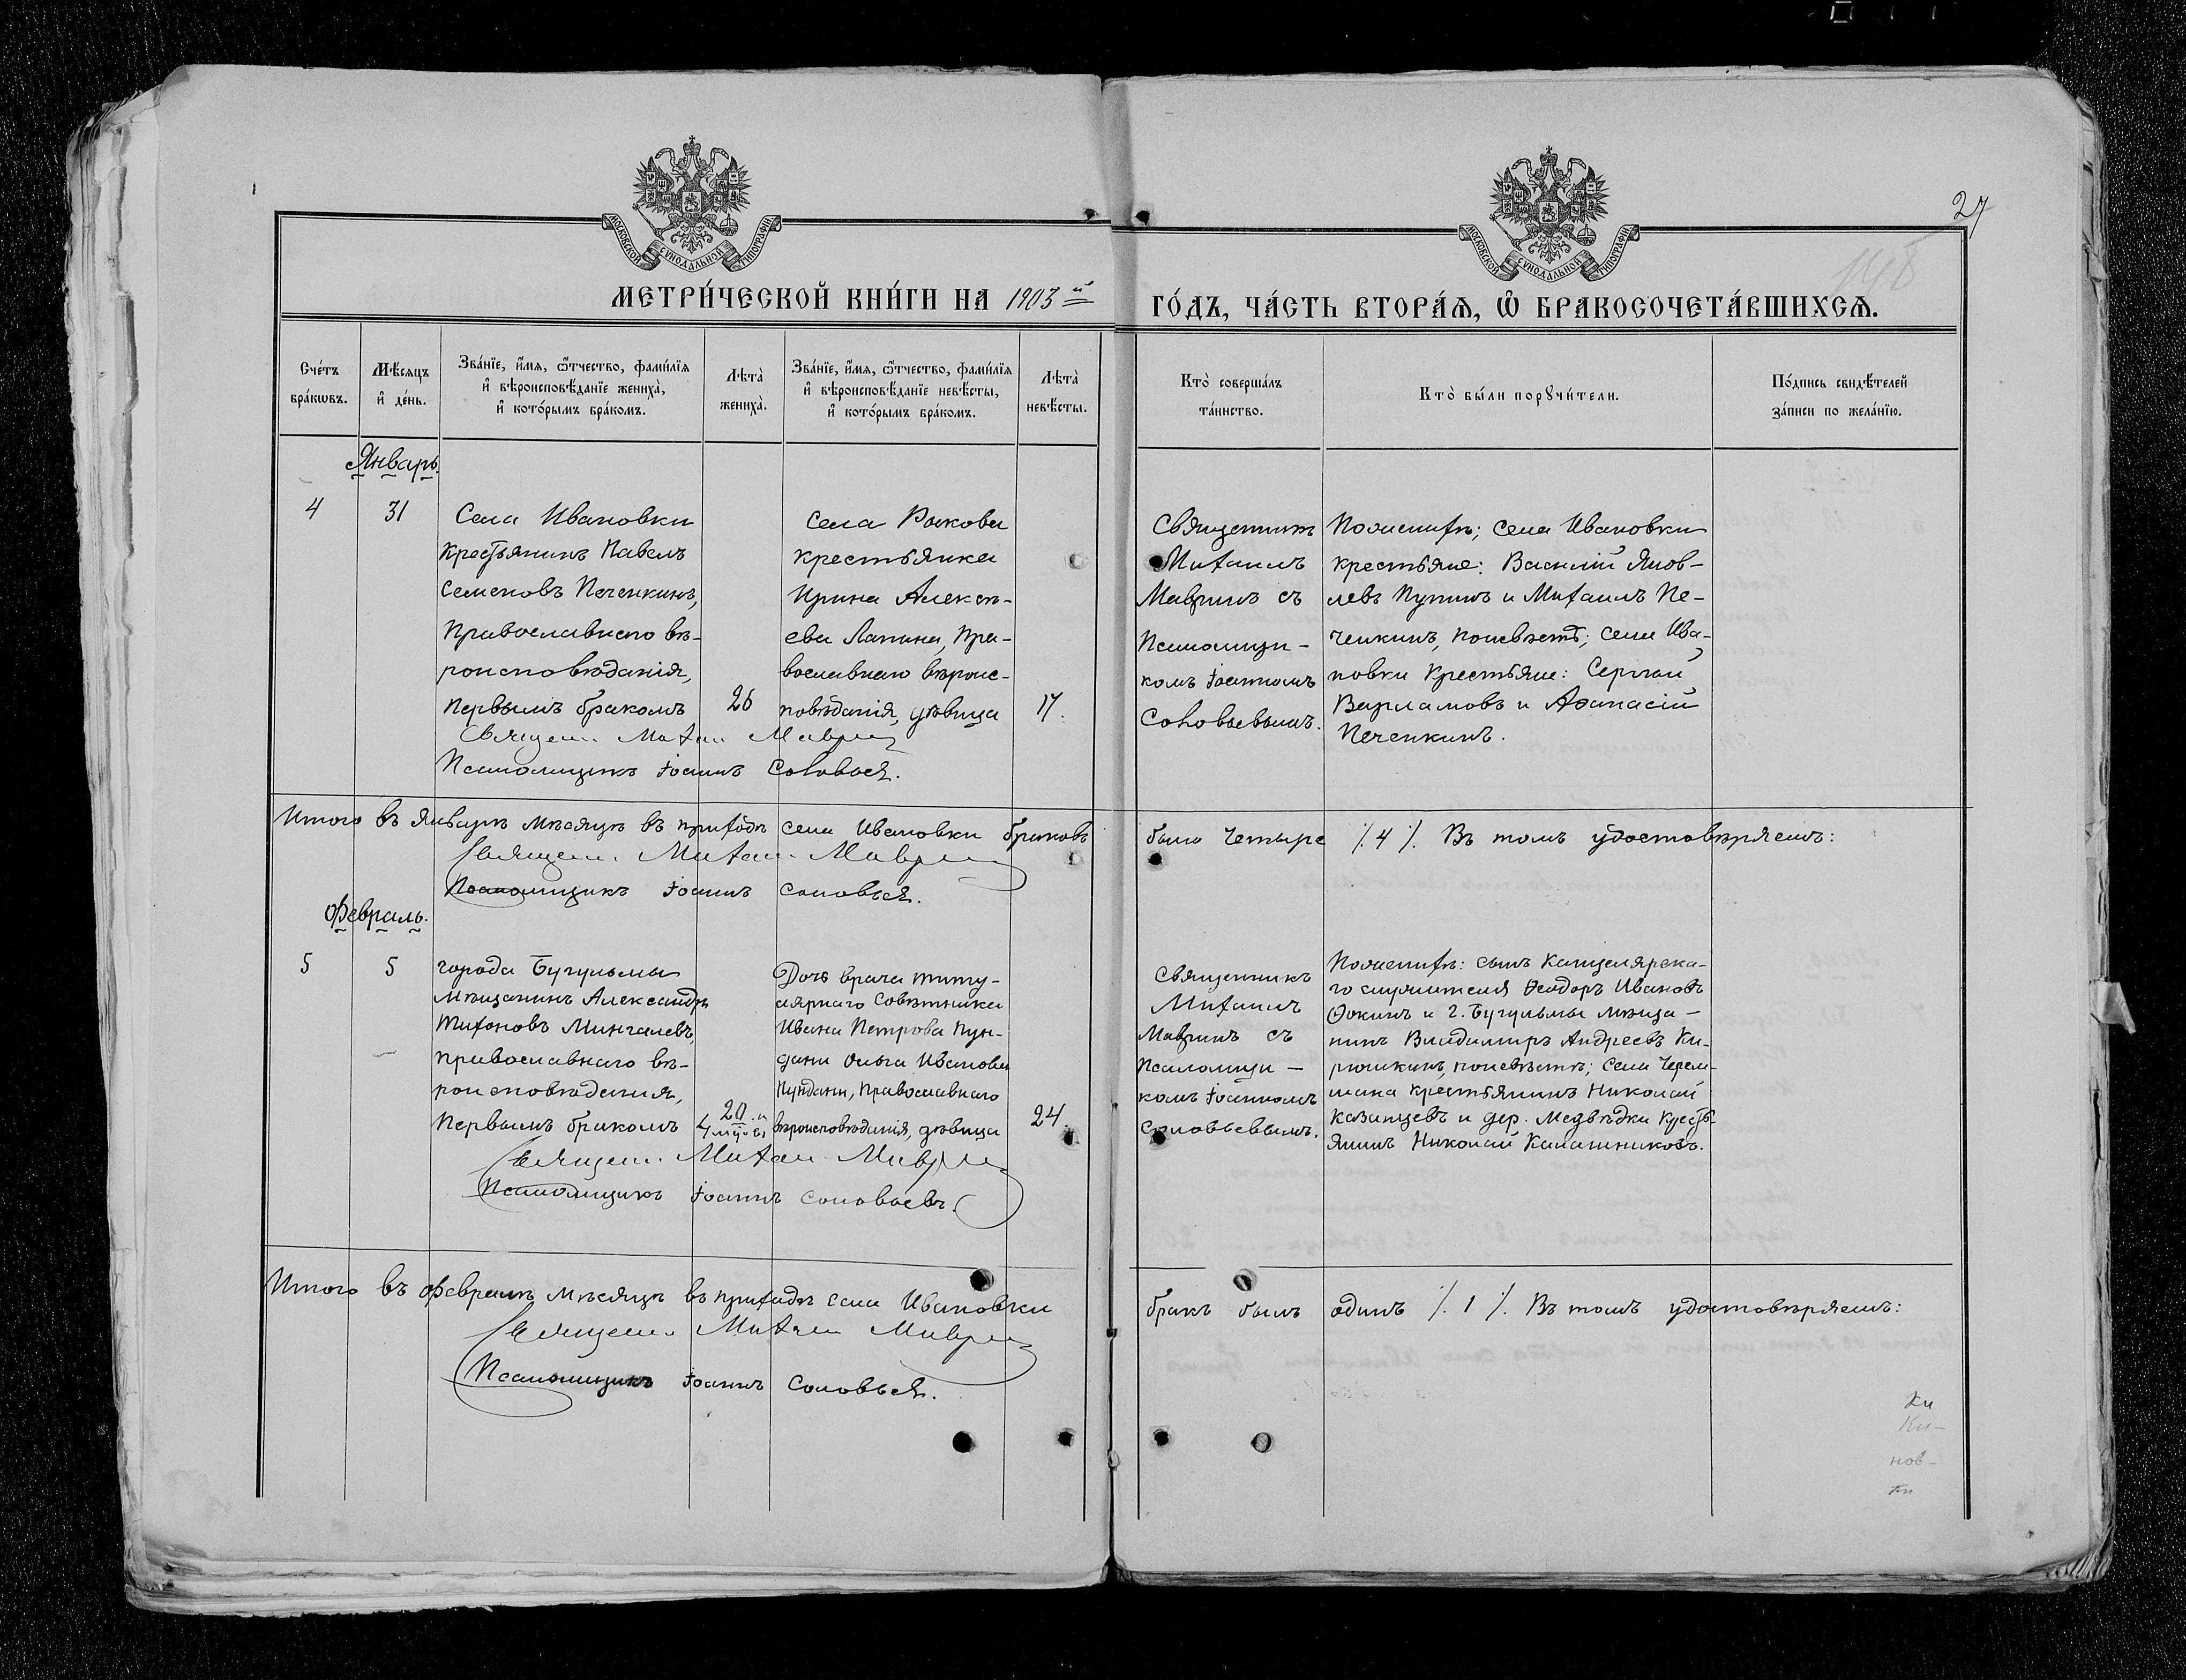 27
МОСКОВСКОЙ СѴНОДАЛЬНОЙ ТИПОГРАФІИ
МОСКОВСКОЙ СѴНОДАЛЬНОЙ ТИПОГРАФІИ
МЕТРИ́ЧЕСКОЙ КНИ́ГИ НА 1903й
ГО́ДЪ, ЧА́СТЬ ВТОРА́Ѧ, Ѽ БРАКОСОЧЕТА́ВШИХСѦ.
Сче́тъ
бра́кѡвъ.
Мѣ́сяцъ
и҆ де́нь.
Зва́нїе, и҆́мя, ѻ҆́тчество, фами́лїя
и҆ вѣроисповѣ́данїе жениха̀,
и҆ кото́рымъ бра́комъ.
Лѣта̀
жениха̀.
Зва́нїе, и҆́мя, ѻ҆́тчество, фами́лїя
и҆ вѣроисповѣ́данїе невѣ́сты,
и҆ кото́рымъ бра́комъ.
Лѣта̀
невѣ́сты.
Кто̀ соверша́лъ
та́инство.
Кто̀ бы́ли порꙋчи́тели.
По́дпись свидѣ́телей
за́писи по жела́нїю.
Январь.
4
31
Села Ивановки
крестьянинъ Павелъ
Семеновъ Печенкинъ,
Православнаго вѣ-
роисповѣданія,
первымъ бракомъ
26
села Рыкова
крестьянка
Ирина Алексѣ-
ева Лапина, пра-
вославнаго вѣроис-
повѣданія, дѣвица
17.
Священникъ
Михаилъ
Мавринъ съ
Псаломщи-
комъ Іоанномъ
Соловьевымъ.
По женихѣ; села Ивановки
крестьяне: Василій Яков-
левъ Пупинъ и Михаилъ Пе-
ченкинъ, по невѣстѣ; села Ива-
новки крестьяне: Сергѣй
Варламовъ и Аѳанасій
Печенкинъ.
Священ. Михаи. Маврин
Псаломщикъ Іоаннъ Соловьев.
Итого въ Январѣ мѣсяцѣ въ приходѣ села Ивановки браковъ
было четыре /. 4 /. Въ томъ удостовѣряемъ:
Священ. Михаи. Маврин
Псаломщикъ Іоаннъ Соловьев.
Февраль.
5
5
города Бугульмы
мѣщанинъ Александръ
Тихоновъ Мингалевъ,
православнаго вѣ-
роисповѣданія,
первымъ бракомъ
20 и
4 м-ц-въ
Дочь врача титу-
лярнаго Совѣтника
Ивана Петрова Пун-
дани Ольга Иванова
Пундани, православнаго
вѣроисповѣданія, дѣвица
24.
Священникъ
Михаилъ
Мавринъ съ
Псаломщи-
комъ Іоанномъ
Соловьевымъ.
По женихѣ: сынъ Канцелярска-
го служителя Ѳеодоръ Ивановъ
Ѳокинъ и г. Бугульмы мѣща-
нинъ Владимиръ Андреевъ Ки-
рюшкинъ, по невѣстѣ; села Черем-
шана крестьянинъ Николай
Казанцевъ и дер. Медвѣдки крестьь-
янинъ Николай Калашниковъ.
Священ. Михаи Маврин
Псаломщикъ Іоаннъ Соловьевъ.
Итого въ Февралѣ мѣсяцѣ въ приходѣ села Ивановки
бракъ былъ одинъ /. 1 /. Въ томъ удостовѣряемъ:
Священ. Михаи Маврин
Псаломщикъ Іоаннъ Соловьев.
ки
Ки-
нов-
ки